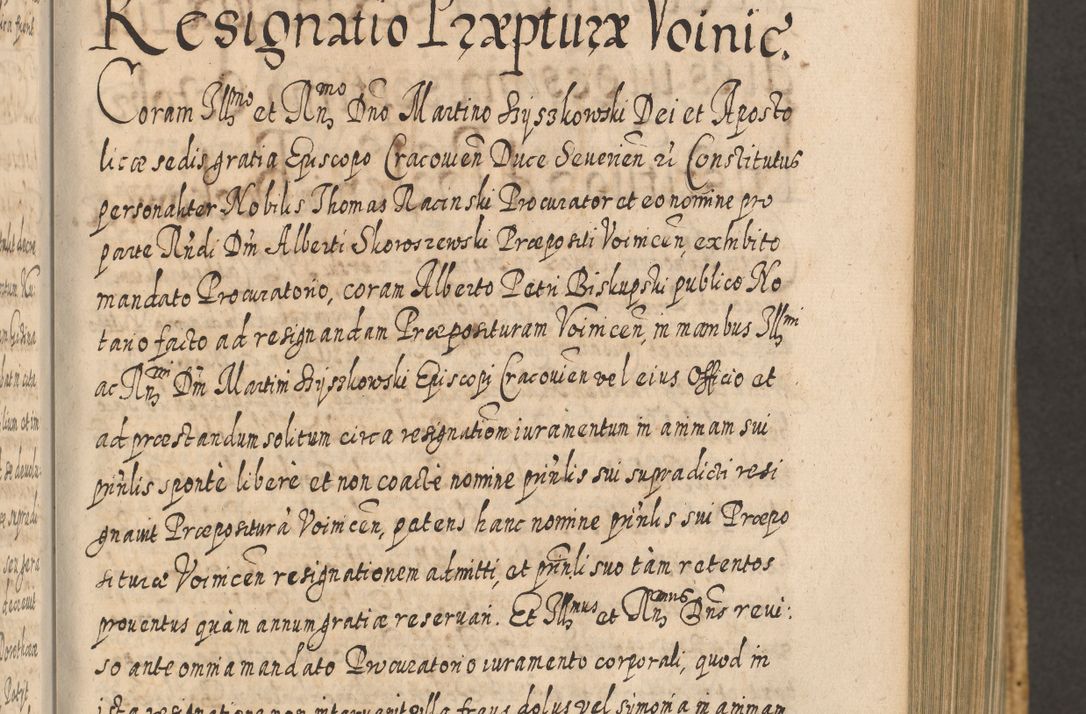 Resignatio Præpturæ Voinic.
Coram Illmo et Rnmo Dño Martino Szyszkowski Dei et Aposto
licæ sedis gratia Episcopo Cracovien Duce Severien zi Constitutus
personaliter Nobilis Thomas Racinski Procurator et eo nomine pro
parte Rñdi Dñi Alberti Skoroszewski Præpositi Voinicen, exhibito
mandato Procuratorio, coram Alberto Petri Biskupski publico No
tario facto ad resignandam Præposituram Voinicen, in manibus Illmi
ac Rnmi Dñi Martini Szyszkowski Episcopi Cracovien vel eius Officio et
ad præstandum solitum circa resignatiom iuramentum in animam sui
prinlis spontè liberè et non coactè nomine prinlis sui supradicti resi
gnavit Præpositurà Voinicen, petens hanc nomine prinlis sui Præpo
situræ Voinicen resignationem admitti, et prinli suo tàm retentos
proventus quàm annum gratiæ reservari. Et Illmus et Rnmus Dñs revi:
so ante omnia mandato Procuratorio iuramento corporali, quod in
ista resignatione non intervenit ulla fraus dolus vel simonia in animam